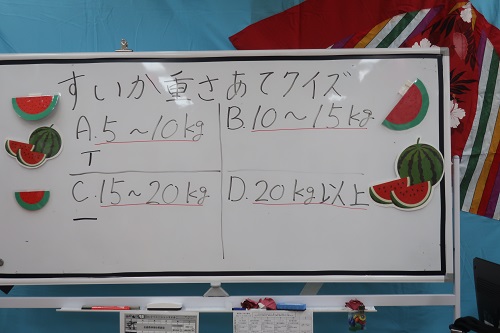 すいか重さあてクイズ
A.5~10kg
B.10~15kg
C.15~20kg
D.20kg以上